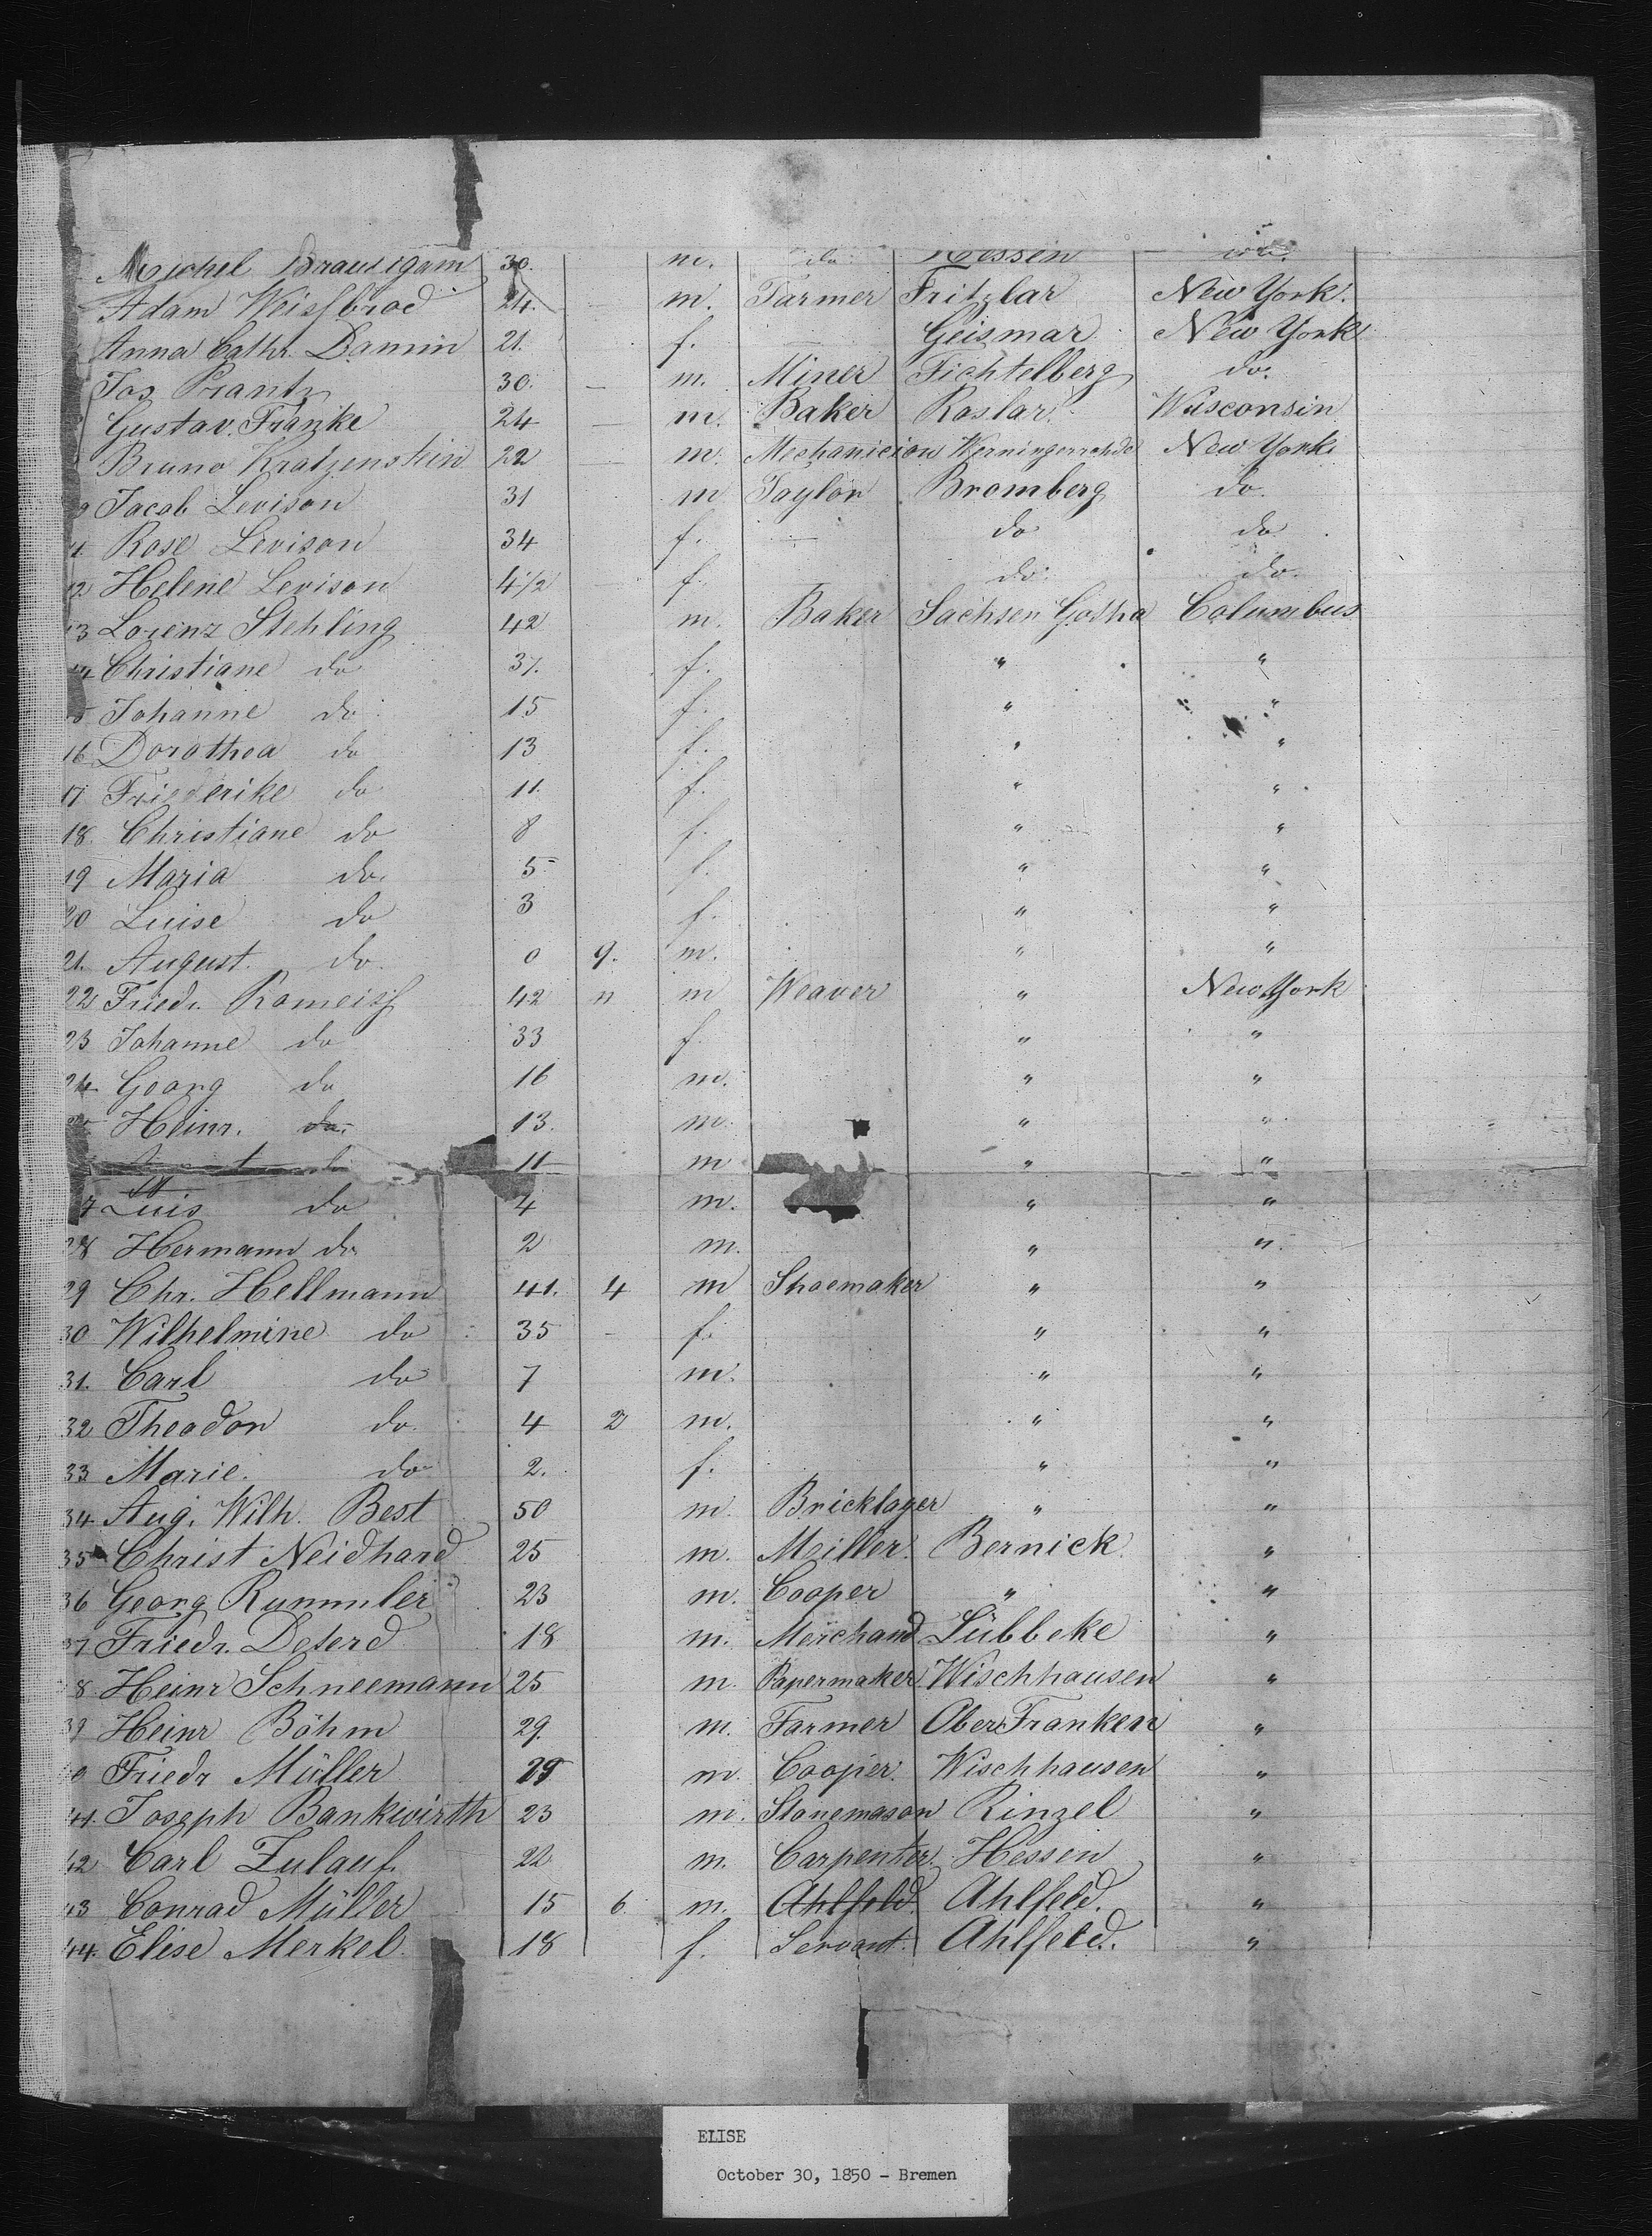 Michel Brautigam 30. m. do Hessen do.
Adam Weissbrod 24. m. Farmer Fritzlar New York.
Anna Cathr. Damin 21. f. — Geismar New York
Jos Prantz 30. — m. Miner Fichtelberg do.
Gustav. Franke 24 — m. Baker Roslar. Wisconsin
Bruno Kratzenstein 22 — m. Mechanicion New York
Jacob Levison 31 m Taylor Bromberg do.
Rose Levison 34 f. — do do
12 Helene Levison 4 1/2 — f. do. do.
13 Lorenz Stehling 42 m. Baker Sachsen Gotha Columbus
14 Christiane do 37. f. " "
15 Johanne do 15 f. " "
16 Dorothea do 13 f. " "
17 Friederike do 11. f. " "
18. Christiane do 8 f. " "
19 Maria do. 5 f. " "
20 Luise do 3 f. " "
21. August. do. 0 9. m. " "
22 Friedr. Romeiss 42 n m Weaver " New York
23 Johanne do 33 f. " "
24 Georg do 16 m. " "
25 Heinr. do. 13. m. " "
do 11 m " "
7 Luis do 4 m. " "
28 Hermann do 2 m. " "
29 Chr. Hellmann 41. 4 m Shoemaker " "
30 Wilhelmine do 35 — f. " "
31. Carl do 7 m. " "
32 Theodor do. 4 2 m. " "
33 Marie. do 2. f. " "
34 Aug. Wilh. Best 50 m. Bricklayer " "
35 Christ Neidhard 25 m. Meiller. Bernick. "
36 Georg Rummler 23 m. Cooper " "
37 Friedr. Deterd 18 m. Merchand Lübbeke "
38 Heinr Schneemann 25 m. Papermaker Wischhausen "
39 Heinr Böhm 29. m. Farmer Ober Franken "
40 Friedr Müller 29 m. Cooper. Wischhausen "
41. Joseph Bankwirth 23 m. Stonemason Rinzel "
42 Carl Zulauf. 22 m. Carpenter. Hessen "
43 Conrad Müller 15 6. m. Ahlfeld. Ahlfeld. "
44. Elise Merkel. 18 f. Servant. Ahlfeld. "
ELISE
October 30, 1850 - Bremen